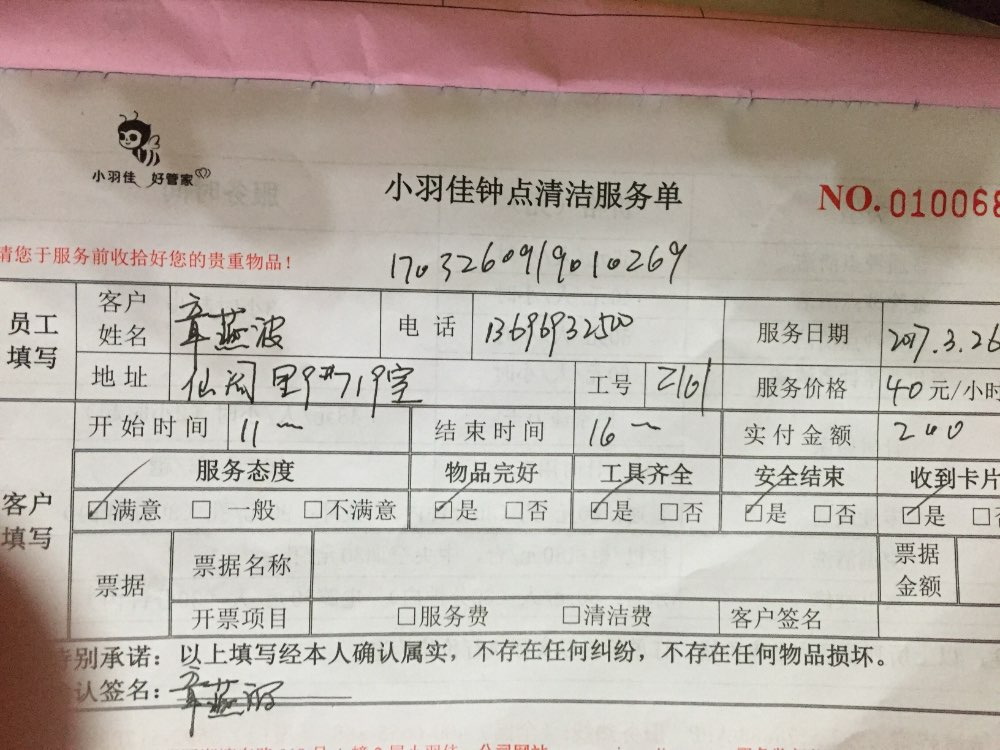 小羽佳 好管家
小羽佳钟点清洁服务单
NO.010068
请您于服务前收拾好您的贵重物品!
1703260919010269
员工填写 客户姓名 章燕波 电话 13696932500 服务日期 2017.3.26
地址 仙阁里9#719室 工号 2101 服务价格 40元/小时
开始时间 11~ 结束时间 16~ 实付金额 200
客户填写 服务态度 物品完好 工具齐全 安全结束 收到卡片
☑满意 □一般 □不满意 ☑是 □否 ☑是 □否 ☑是 □否 ☑是 □否
票据 票据名称 票据金额
开票项目 □服务费 □清洁费 客户签名
特别承诺:以上填写经本人确认属实,不存在任何纠纷,不存在任何物品损坏。
确认签名:章燕波